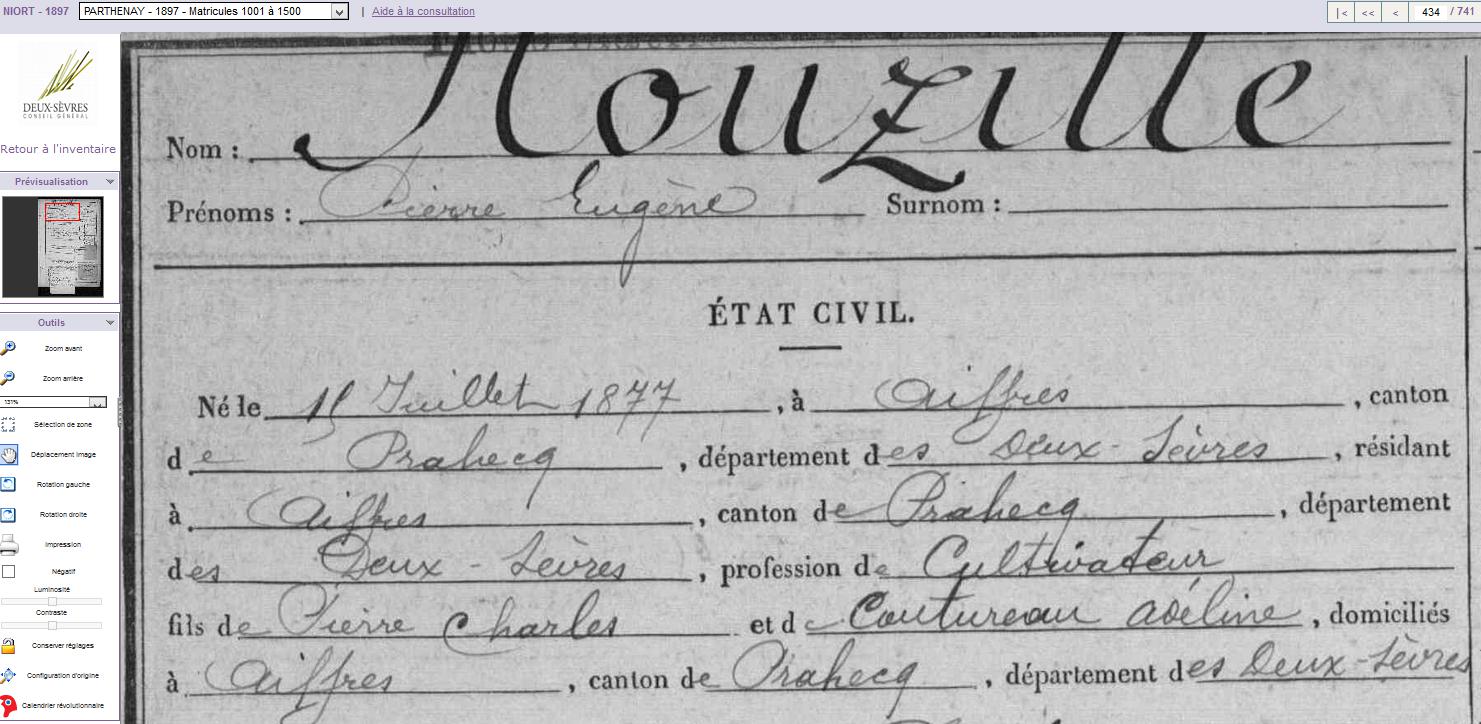 NIORT - 1897 PARTHENAY - 1897 - Matricules 1001 à 1500 | Aide à la consultation |< << < 434 / 741
DEUX-SÈVRES
CONSEIL GÉNÉRAL
Retour à l'inventaire
Prévisualisation
Outils
Zoom avant
Zoom arrière
131%
Sélection de zone
Déplacement image
Rotation gauche
Rotation droite
Impression
Négatif
Luminosité
Contraste
Conserver réglages
Configuration d'origine
Calendrier révolutionnaire
Nom : Nouzille
Prénoms : Pierre Eugène Surnom :
ÉTAT CIVIL.
Né le 15 Juillet 1877, à Aiffres, canton
de Prahecq, département des Deux-Sèvres, résidant
à Aiffres, canton de Prahecq, département
des Deux-Sèvres, profession de Cultivateur
fils de Pierre Charles et de Coutureau Adéline, domiciliés
à Aiffres, canton de Prahecq, département des Deux-Sèvres